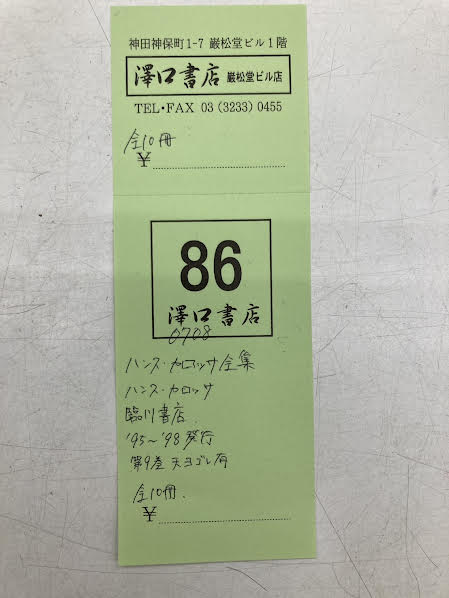 神田神保町1-7 巌松堂ビル1階
澤口書店 巌松堂ビル店
TEL・FAX 03 (3233) 0455
全10冊
¥
86
澤口書店
0708
ハンス・カロッサ全集
ハンス・カロッサ
臨川書店
'95～'98発行
第9巻 天ヨゴレ有
全10冊.
¥